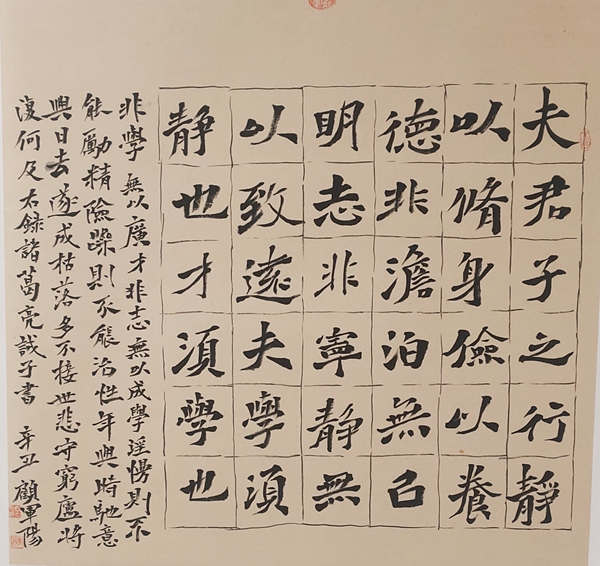 夫君子之行靜
以脩身儉以養
德非澹泊無㠯
明志非寧靜無
以致遠夫學須
靜也才須學也
非學無以廣才非志無以成學淫慢則不
能勵精險躁則不能治性年與時馳意
與日去遂成枯落多不接世悲守窮廬將
復何及右錄諸葛亮誡子書 辛丑 顧軍陽